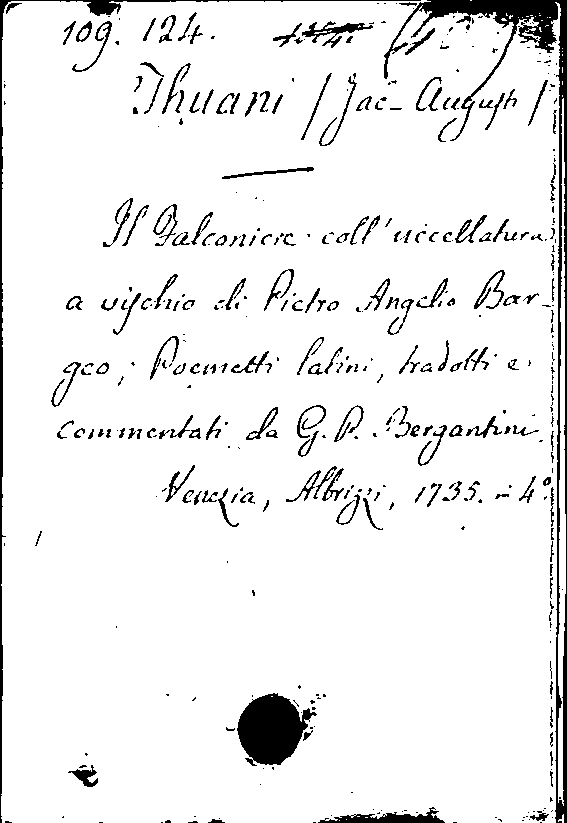 109. 124.
Thuani / Jac– Augusti /
Il Falconiere coll' uccellatura
a vischio di Pietro Angelio Bar-
geo; Poemetti latini, tradotti e
commentati da G. P. Bergantini.
Venezia, Albrizzi, 1735. in 4°.